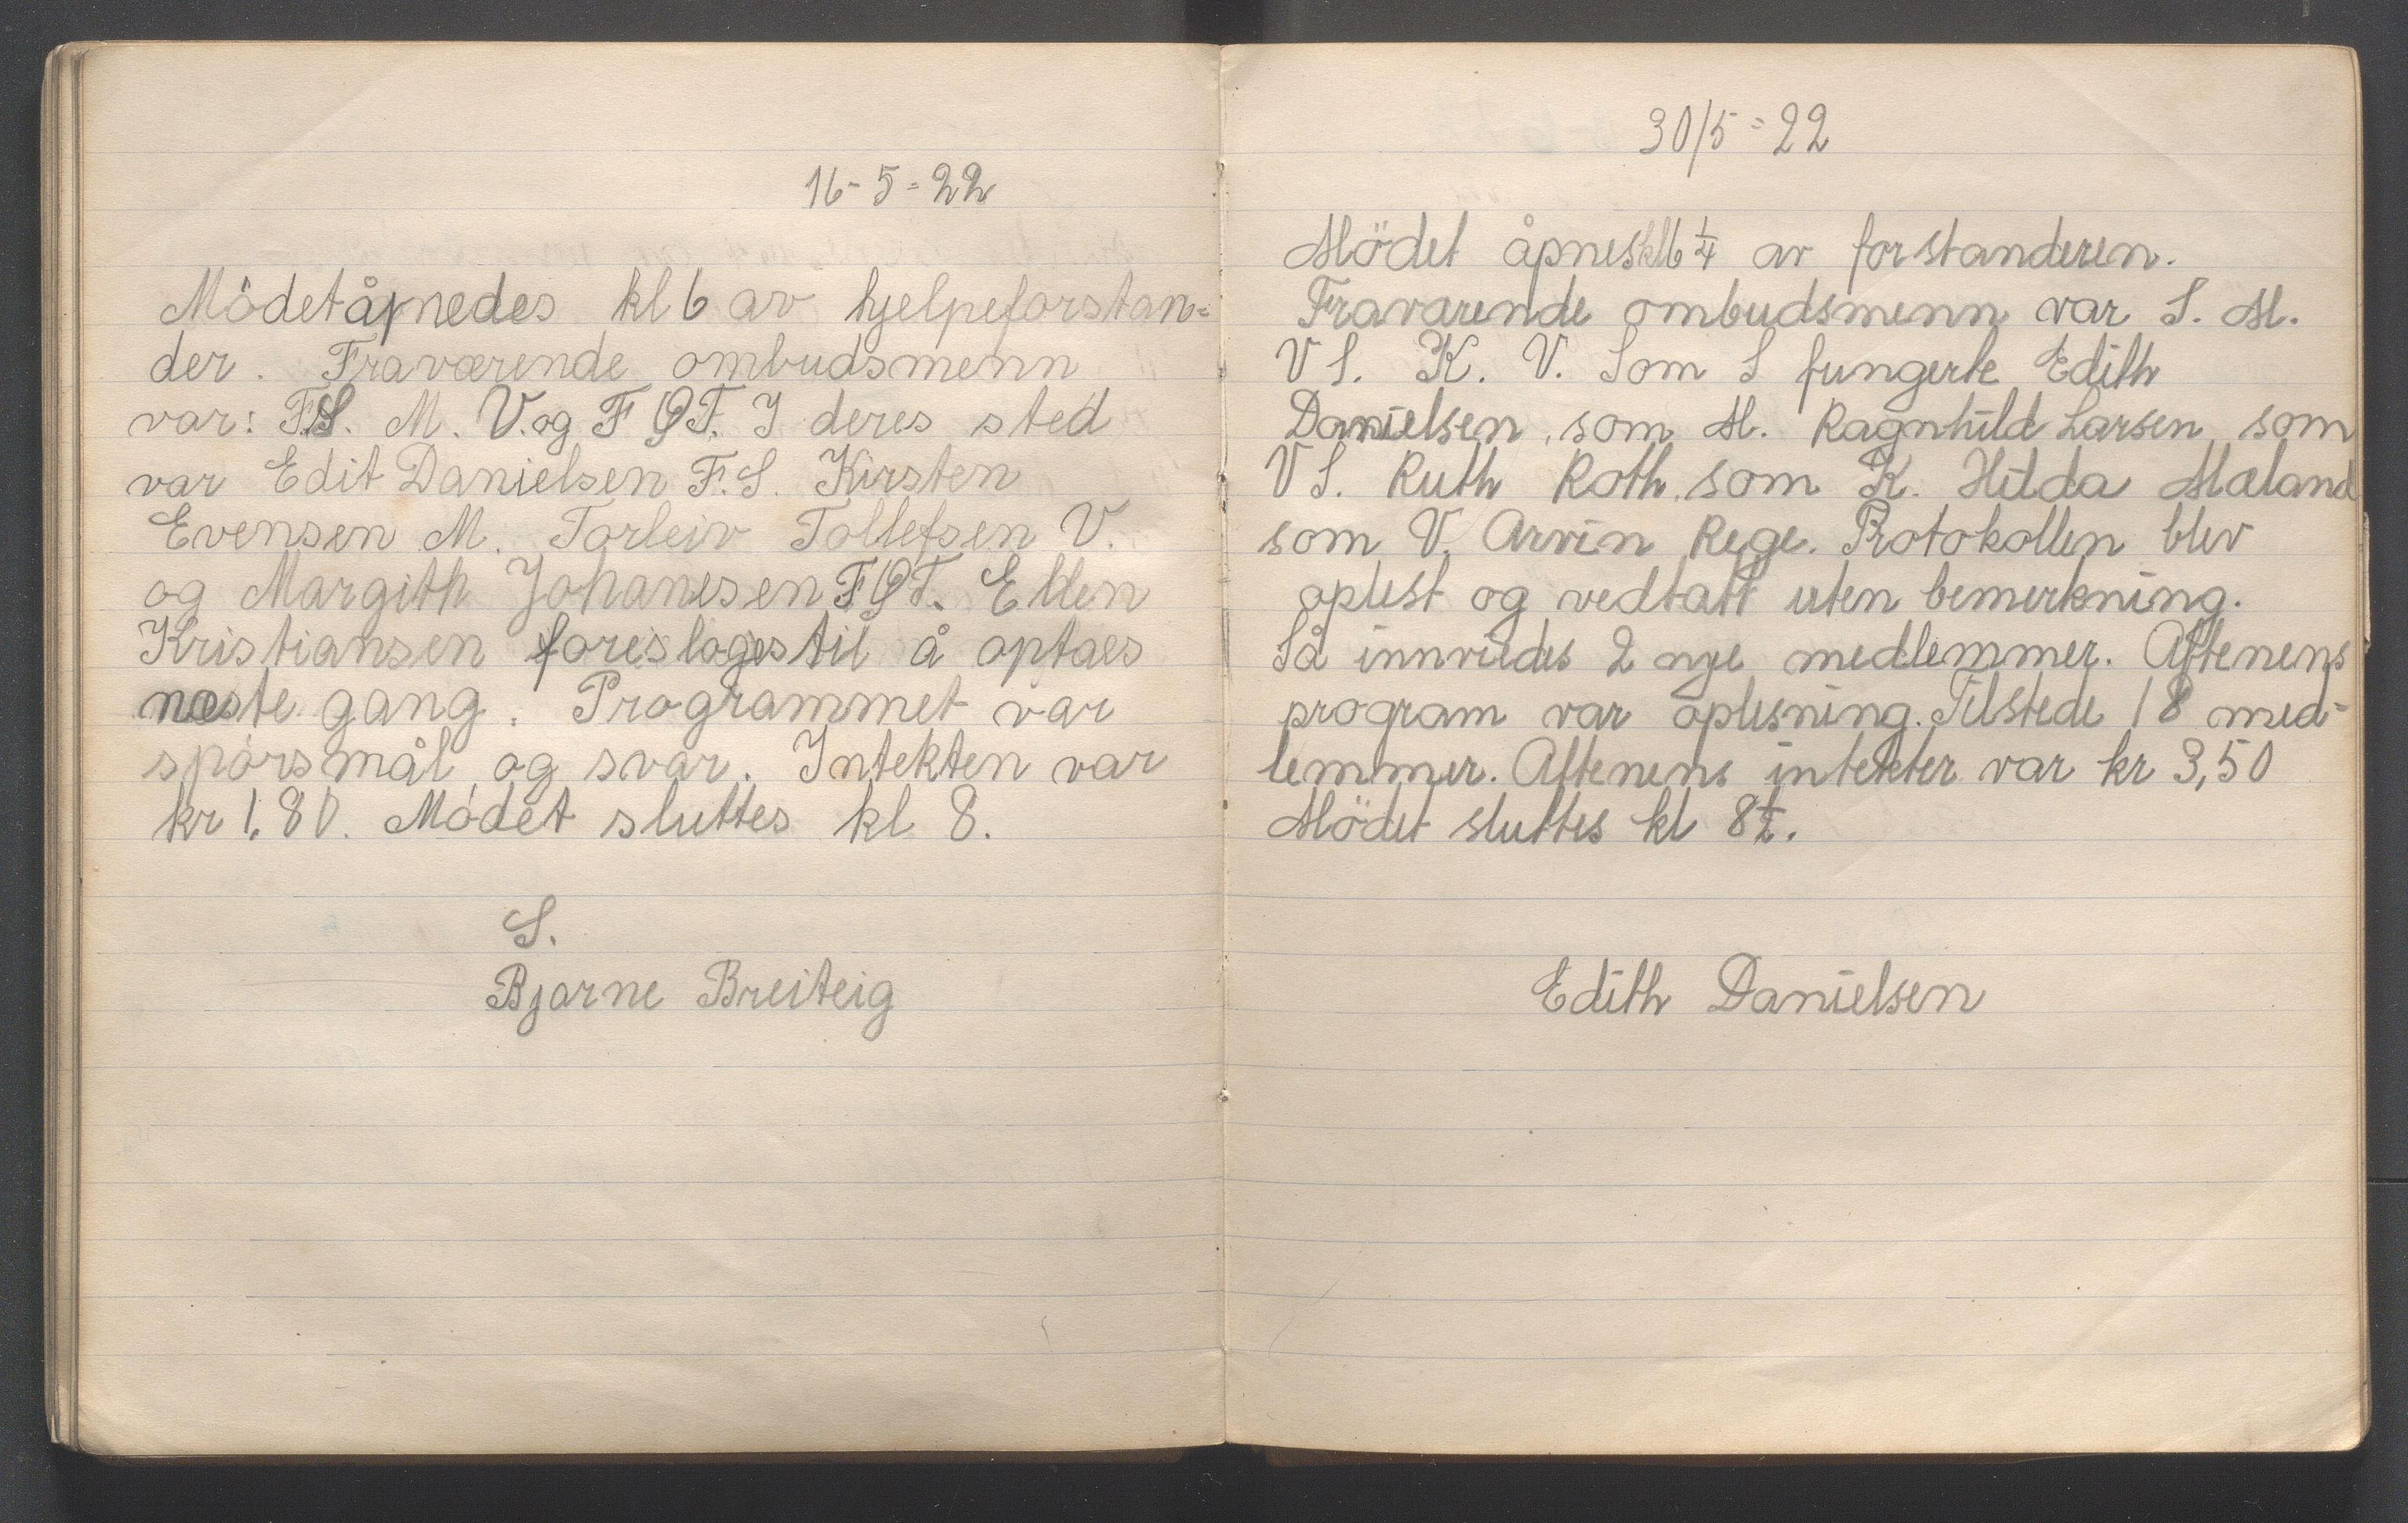 16-5=22
Mödet åpnedes kl 6 av hjelpeforstan=
der. Fraværende ombudsmenn
var: F.S. M. V. og F.Q.T. I deres sted
var Edit Danielsen F.S. Kirsten
Evensen M. Torleiv Tollefsen V.
og Margith Johanesen F.Q.T. Ellen
Kristiansen foresloges til å optaes
næste gang. Programmet var
spörsmål og svar. Intekten var
kr 1,80. Mödet sluttes kl 8.
S.
Bjarne Breiteig
30/5=22
Mödet åpnes kl 6 1/4 av forstanderen.
Fraværende ombudsmenn var S. M.
V S. K. V. Som S fungerte Edith
Danielsen, som M. Ragnhild Larsen som
V S. Ruth Roth, som K. Hilda Mæland
som V. Arvin Rege. Protokollen blev
oplest og vedtatt uten bemerkning.
Så innviedes 2 nye medlemmer. Aftenens
program var oplesning. Tilstede 18 med=
lemmer. Aftenens intekter var kr 3,50
Mödet sluttes kl 8 1/2.
Edith Danielsen